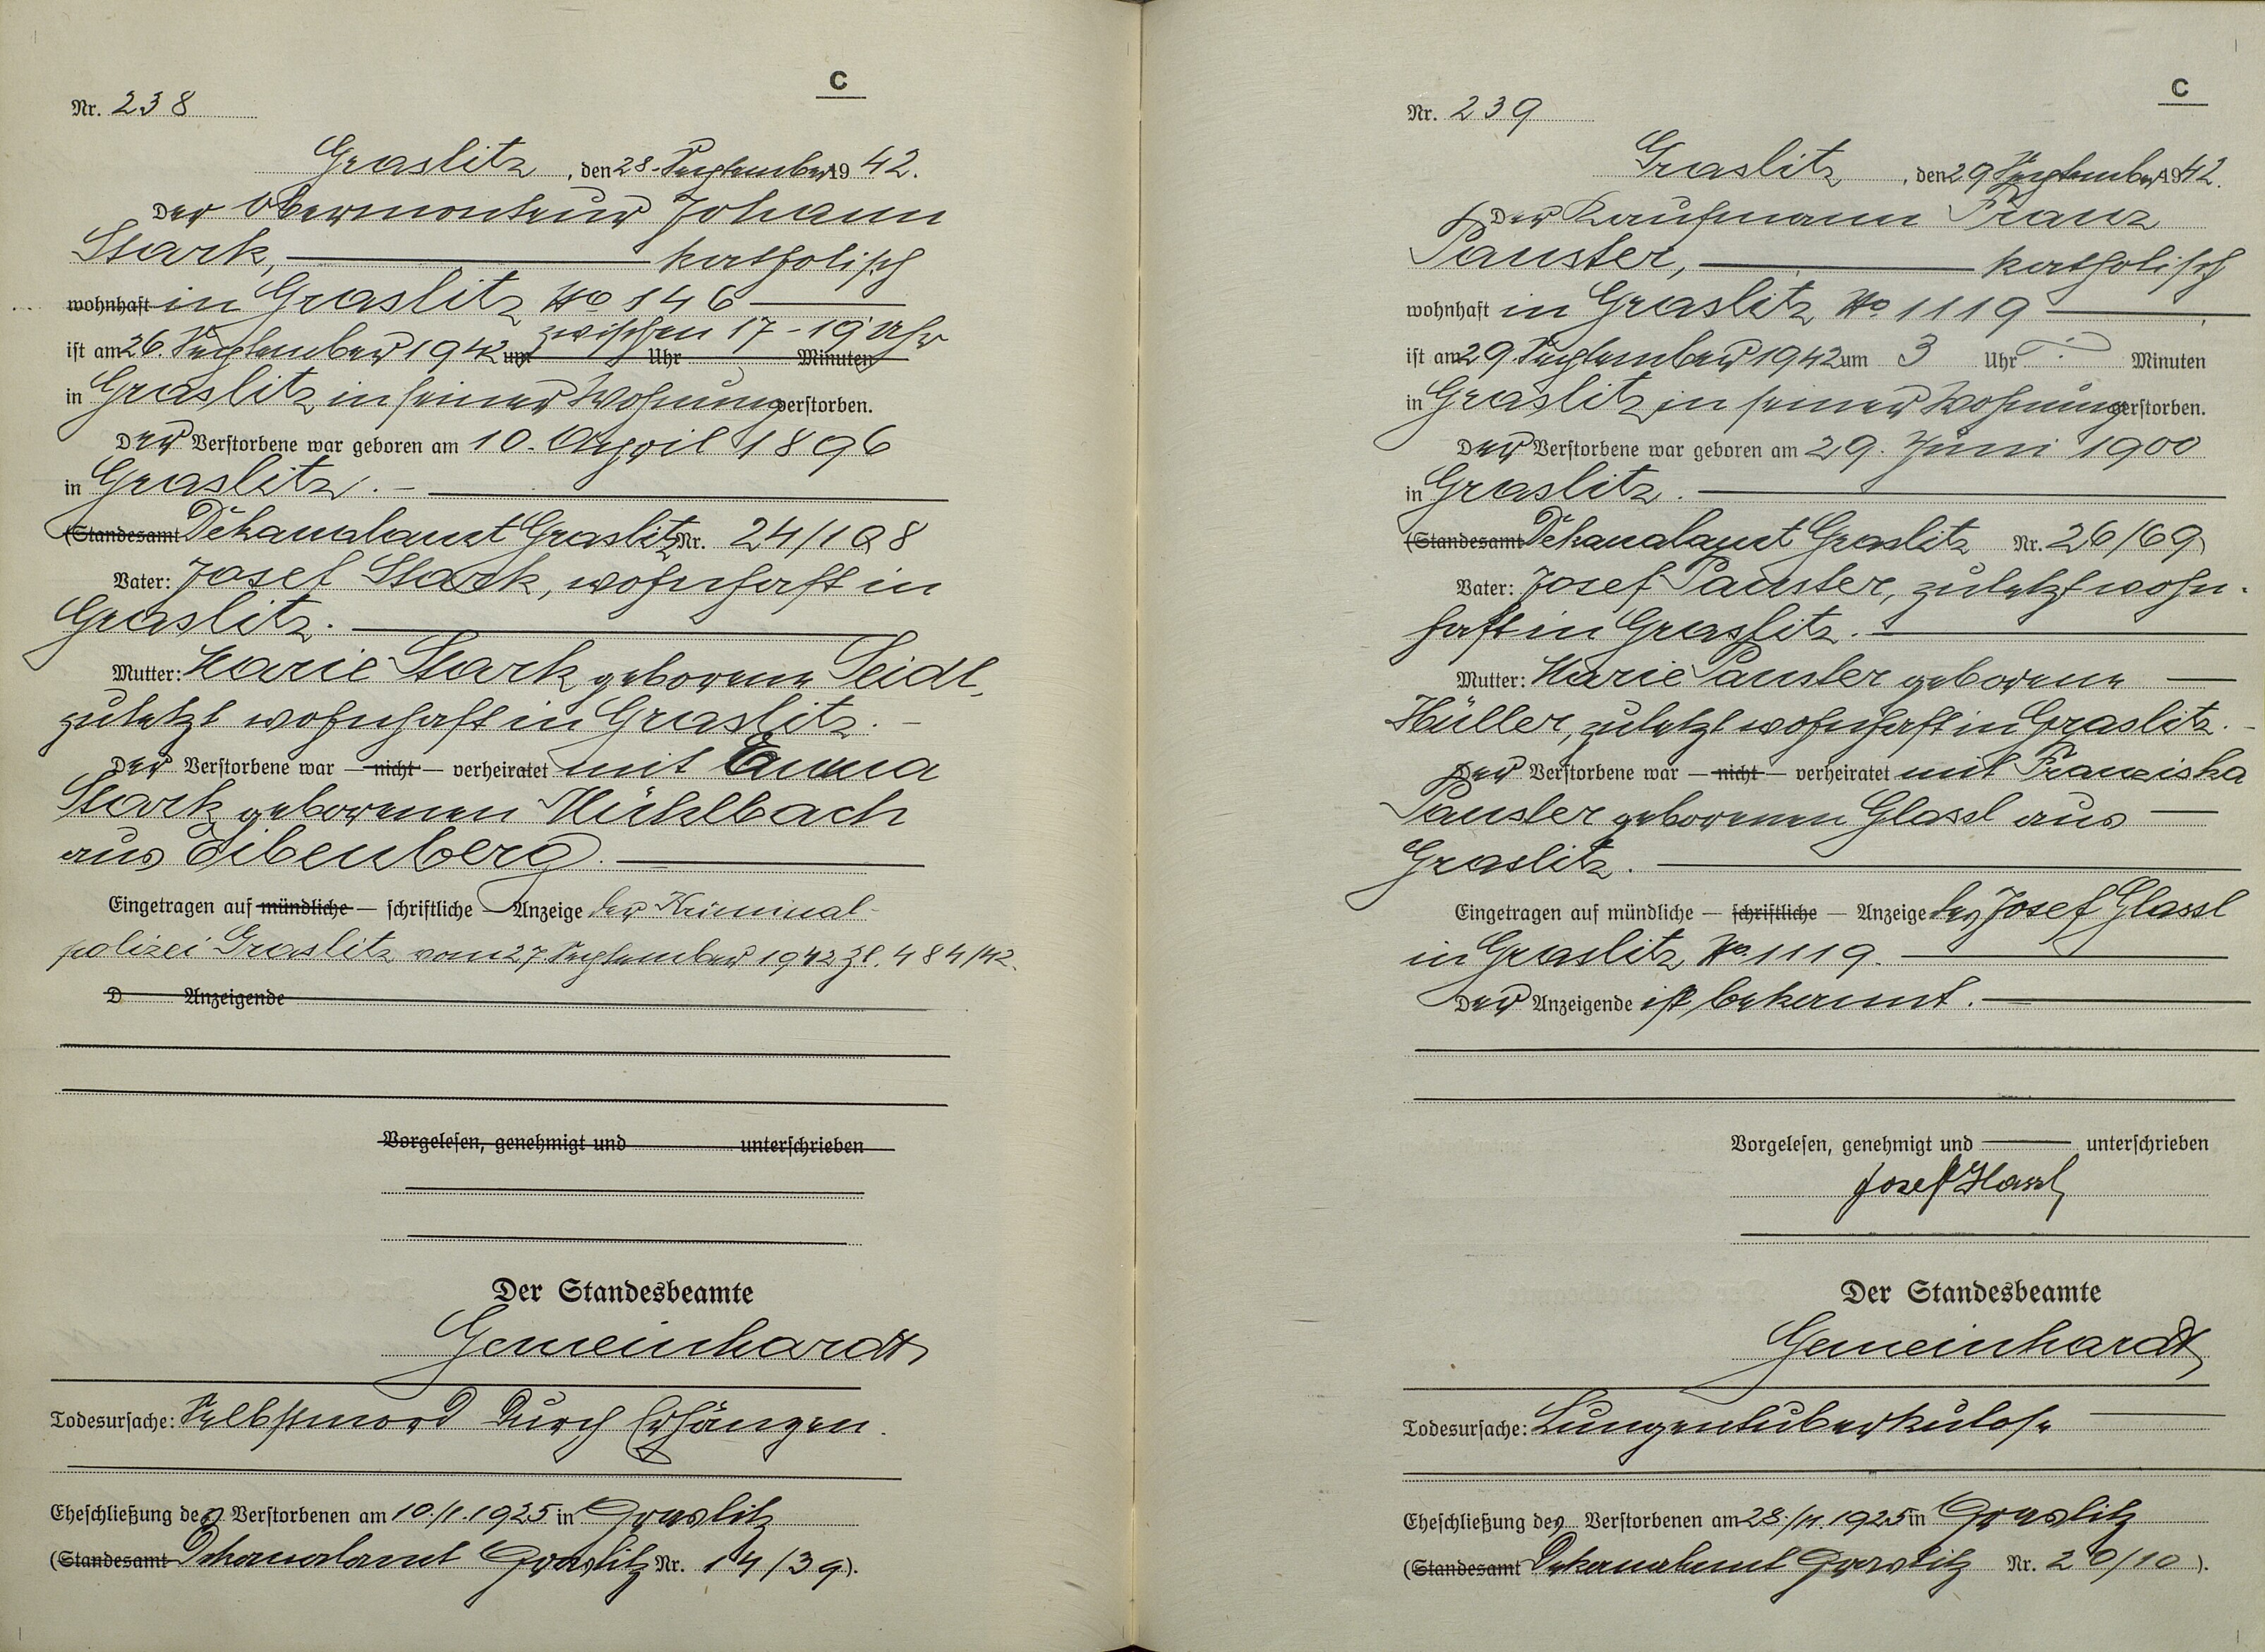 C
Nr. 238
Graslitz, den 28. September 1942.
Der Obermonteur Johann
Stark, katholisch
wohnhaft in Graslitz No 146
zwischen 17-19 Uhr
ist am 26. September 1942 um Uhr Minuten
in Graslitz in seiner Wohnung verstorben.
Der Verstorbene war geboren am 10. April 1896
in Graslitz. -
(Standesamt Dekanalamt Graslitz Nr. 24/108
Vater: Josef Stark, wohnhaft in
Graslitz.
Mutter: Marie Stark geborene Seidl,
zuletzt wohnhaft in Graslitz. -
Der Verstorbene war — nicht — verheiratet mit Emma
Stark geborenen Mühlbach
aus Eibenberg.
Eingetragen auf mündliche — schriftliche — Anzeige der Kriminal-
polizei Graslitz vom 27 September 1942 Zl. 484/42.
D Anzeigende
Vorgelesen, genehmigt und unterschrieben
Der Standesbeamte
Gemeinhardt
Todesursache: Selbstmord durch Erhängen.
Eheschließung des Verstorbenen am 10./1. 1925 in Graslitz
(Standesamt Dekanalamt Graslitz Nr. 14/39).
C
Nr. 239
Graslitz, den 29 September 1942.
Der Kaufmann Franz
Pauster, katholisch
wohnhaft in Graslitz No. 1119
ist am 29. September 1942 um 3 Uhr Minuten
in Graslitz in seiner Wohnung verstorben.
Der Verstorbene war geboren am 29. Juni 1900
in Graslitz.
(Standesamt Dekanalamt Graslitz Nr. 26/69)
Vater: Josef Pauster, zuletzt wohn-
haft in Graslitz.
Mutter: Marie Pauster geborene
Hüller, zuletzt wohnhaft in Graslitz. -
Der Verstorbene war — nicht — verheiratet mit Franziska
Pauster geborenen Glassl aus
Graslitz.
Eingetragen auf mündliche — schriftliche — Anzeige des Josef Glassl
in Graslitz No. 1119.
Der Anzeigende ist bekannt.
Vorgelesen, genehmigt und unterschrieben
Josef Glassl
Der Standesbeamte
Gemeinhardt
Todesursache: Lungentuberkulose
Eheschließung des Verstorbenen am 28./11. 1925 in Graslitz
(Standesamt Dekanalamt Graslitz Nr. 20/10).